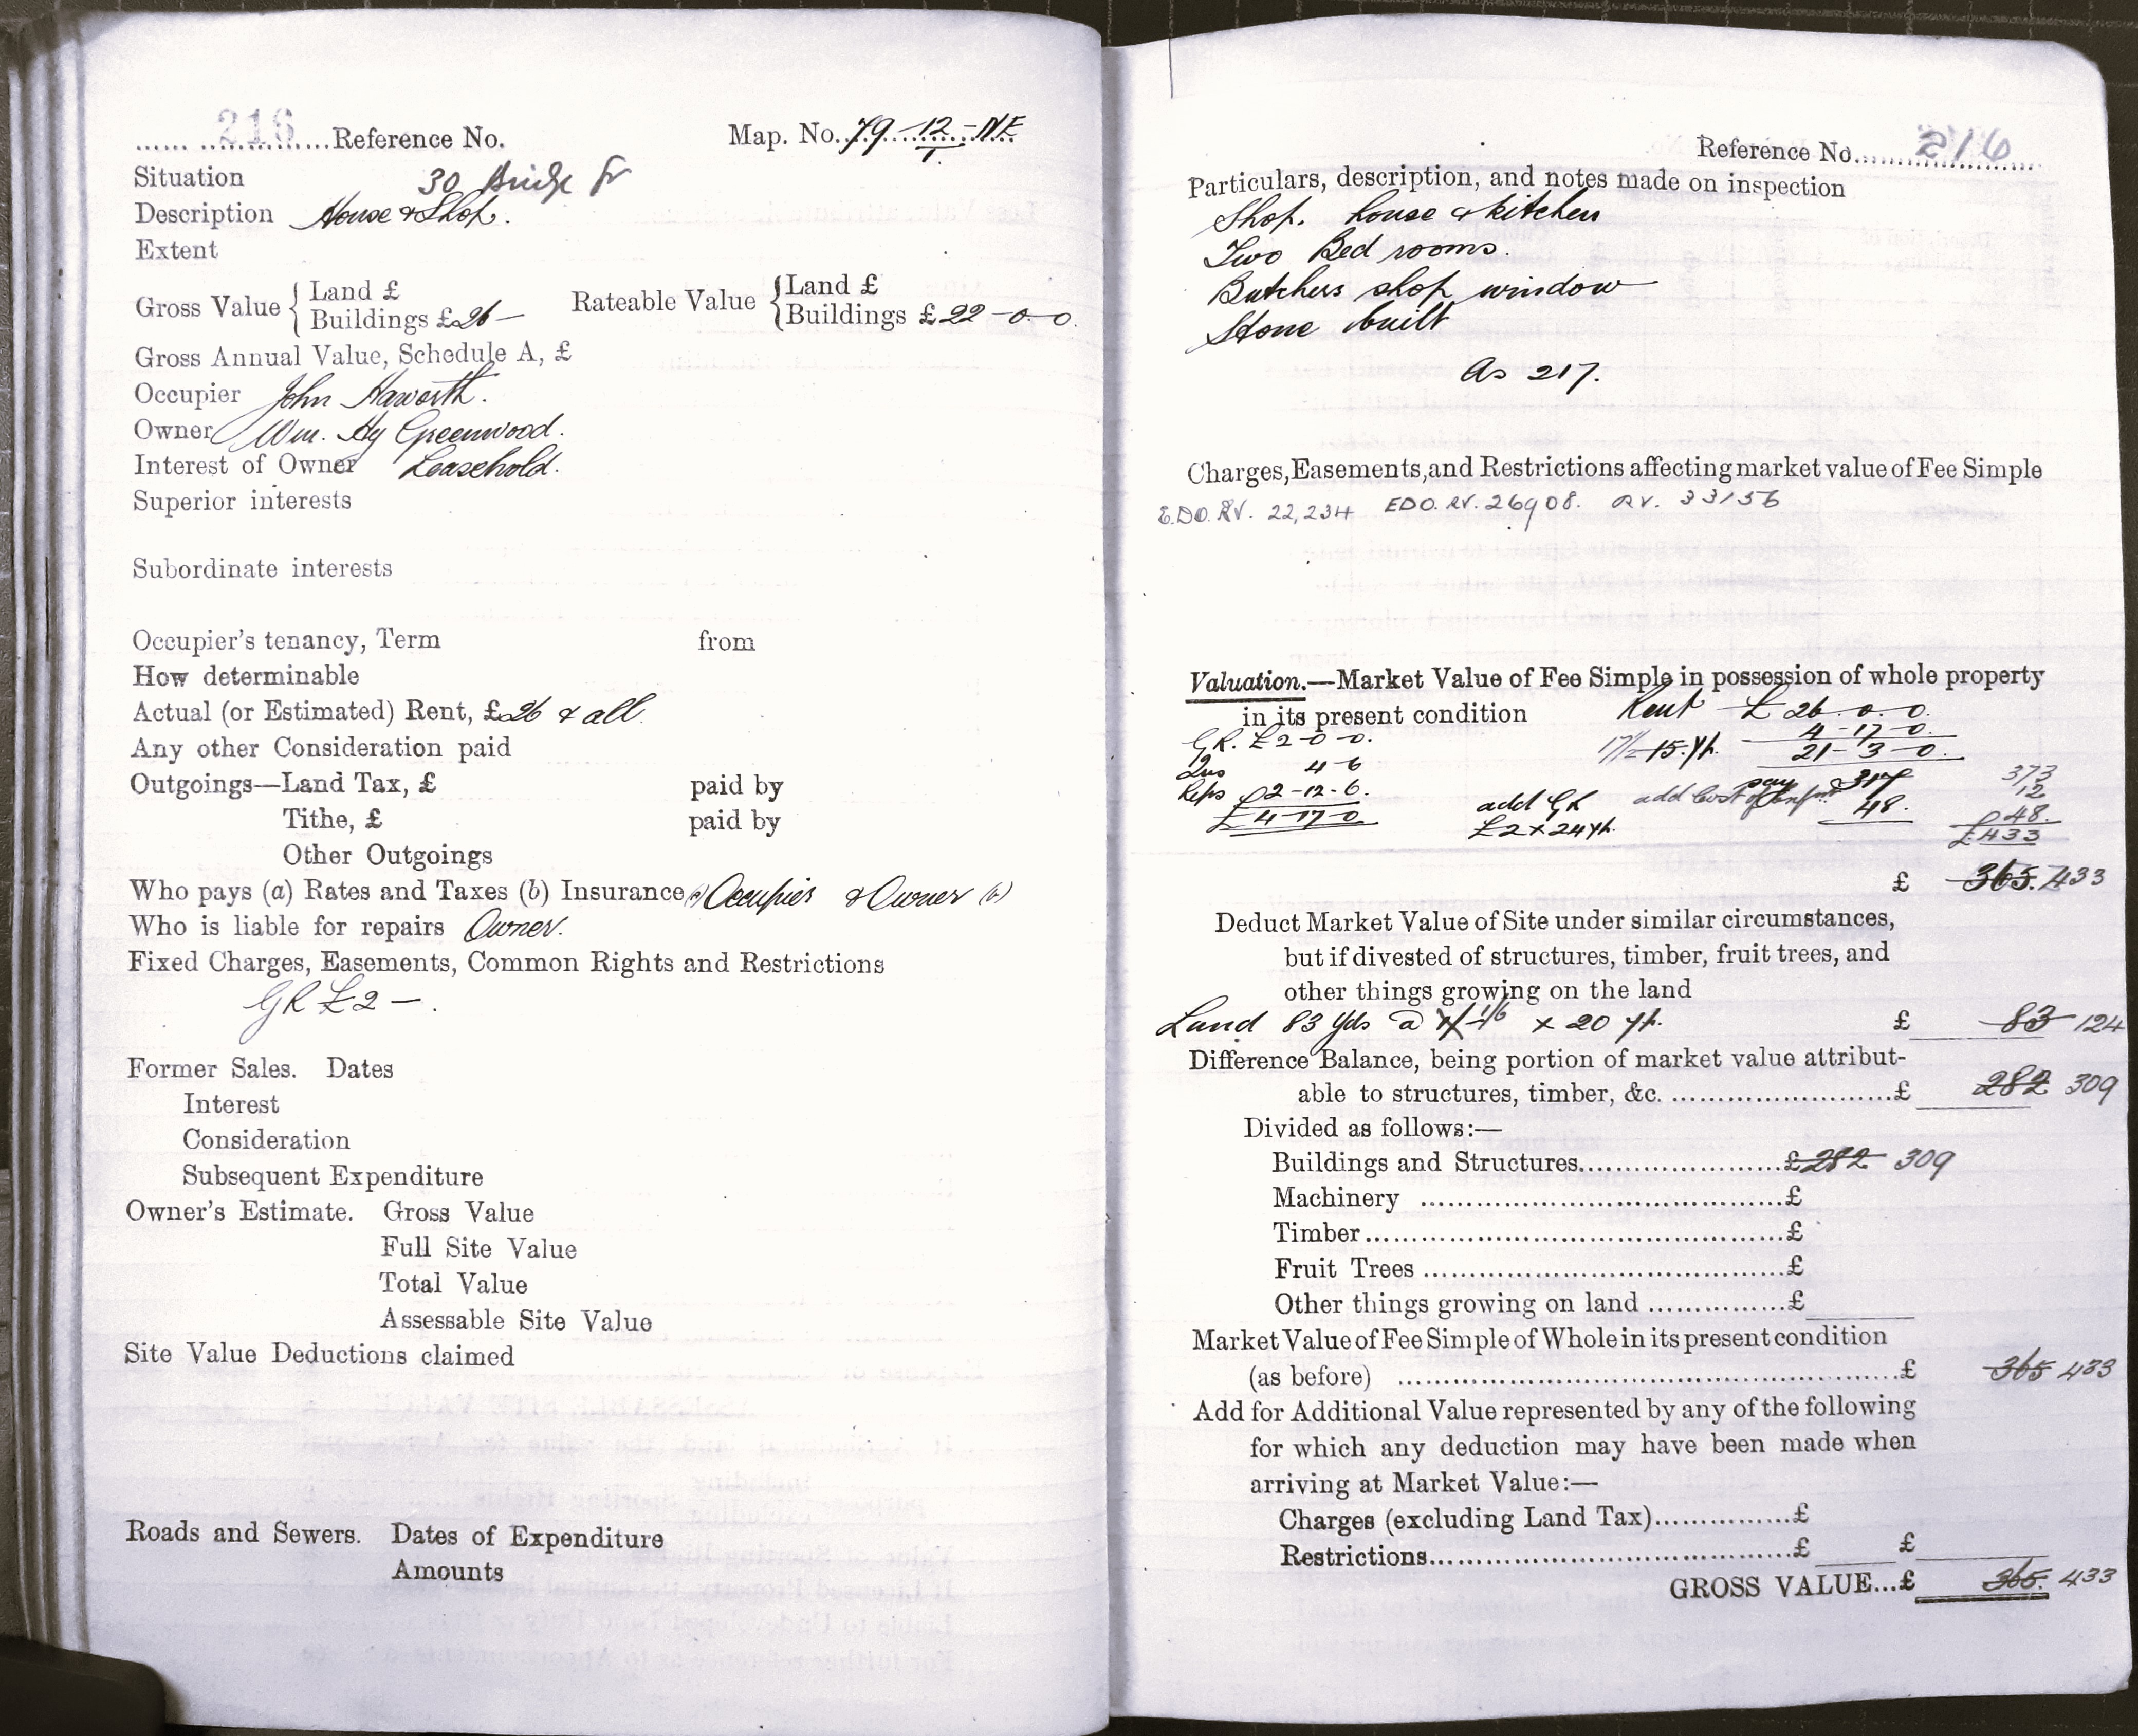 216 Reference No. Map. No. 79-12-NE
1.
Situation 30 Bridge St
Description House & Shop.
Extent
Gross Value { Land £
Buildings £26 – Rateable Value { Land £
Buildings £22-0-0.
Gross Annual Value, Schedule A, £
Occupier John Haworth.
Owner Wm. Hy Greenwood.
Interest of Owner Leasehold.
Superior interests
Subordinate interests
Occupier's tenancy, Term from
How determinable
Actual (or Estimated) Rent, £26 & all.
Any other Consideration paid
Outgoings—Land Tax, £ paid by
Tithe, £ paid by
Other Outgoings
Who pays (a) Rates and Taxes (b) Insurance (a) Occupier & Owner (b)
Who is liable for repairs Owner.
Fixed Charges, Easements, Common Rights and Restrictions
GR £2 – .
Former Sales. Dates
Interest
Consideration
Subsequent Expenditure
Owner's Estimate. Gross Value
Full Site Value
Total Value
Assessable Site Value
Site Value Deductions claimed
Roads and Sewers. Dates of Expenditure
Amounts
Reference No. 216
Particulars, description, and notes made on inspection
Shop. house & kitchen
Two Bed rooms.
Butchers shop window
Stone built
As 217.
Charges, Easements, and Restrictions affecting market value of Fee Simple
E.D.O. RV. 22,234 EDO. RV. 26908. RV. 33156
Valuation.—Market Value of Fee Simple in possession of whole property
in its present condition Rent £26.0.0.
GR. £2-0-0. 4-17-0.
Ins 4-6 17½ 15 yp. 21-3-0.
Reps 2-12-6. say 317 373
£4-17-0 add GR add Cost of 48. 12
£2 x 24 yp. 48.
£433
£ 365. 433
Deduct Market Value of Site under similar circumstances,
but if divested of structures, timber, fruit trees, and
other things growing on the land
Land 83 yds @ 1/6 x 20 yp. £ 83 124
Difference Balance, being portion of market value attribut-
able to structures, timber, &c. ........................£ 282 309
Divided as follows:—
Buildings and Structures.....................£282 309
Machinery ................................£
Timber......................................£
Fruit Trees ................................£
Other things growing on land ...............£
Market Value of Fee Simple of Whole in its present condition
(as before) ...........................................£ 365 433
Add for Additional Value represented by any of the following
for which any deduction may have been made when
arriving at Market Value:—
Charges (excluding Land Tax)..............£
Restrictions...................................£ £
GROSS VALUE...£ 365. 433